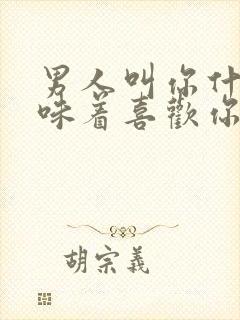 男人叫你什
咪着喜歡你
胡宗義